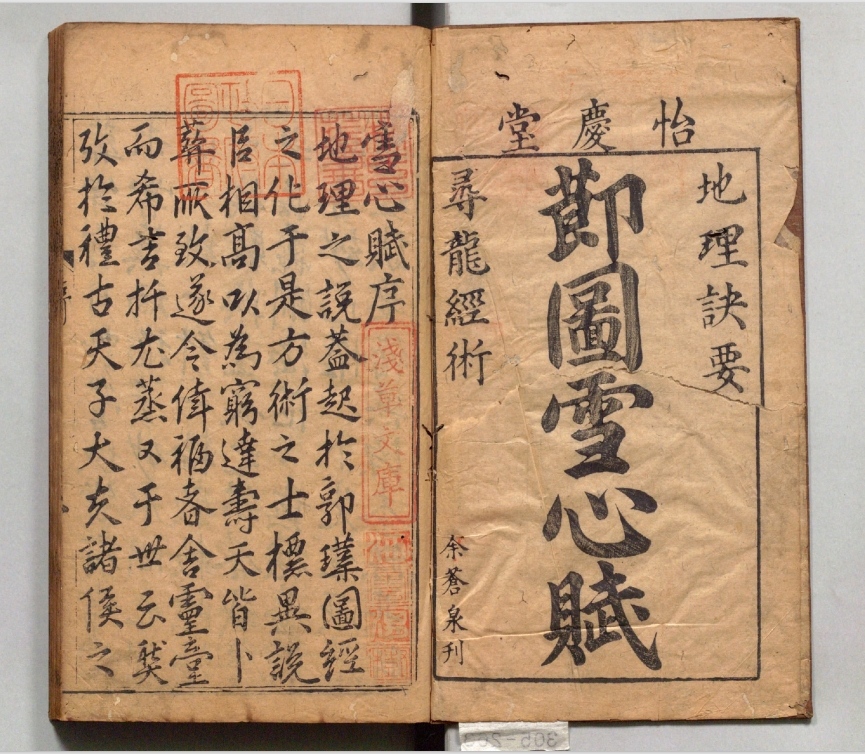 怡慶堂
地理訣要
莭圖雪心賦
尋龍經術
余蒼泉刊
雪心賦序
淺草文庫
地理之說蓋起於郭璞圖經
之化于是方術之士標異說
㠯相高以為窮達壽夭皆卜
葬所致遂令倖福者舍靈臺
而希吉扦尤蒸又于世云
攷於禮古天子大夫諸侯之